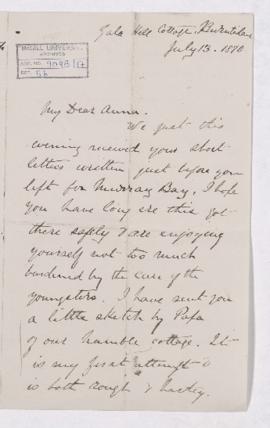 Gala Hill Cottage,
July 13. 1890
McGILL UNIVERSITY
ARCHIVES
ACC. NO.
REF.
My Dear Anna.
We just this
evening received your short
letters written just before you
left for Murray Bay. I hope
you have long ere this got
there safely & are enjoying
yourself not too much
burdened by the care of the
youngsters. I have sent you
a little sketch by Papa
of our humble cottage. It
is my first attempt &
is both rough & hasty.